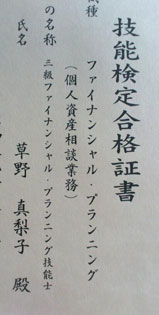 技能検定合格証書
職種
ファイナンシャル・プランニング
（個人資産相談業務）
の名称
三級ファイナンシャル・プランニング技能士
氏名
草野 真梨子 殿